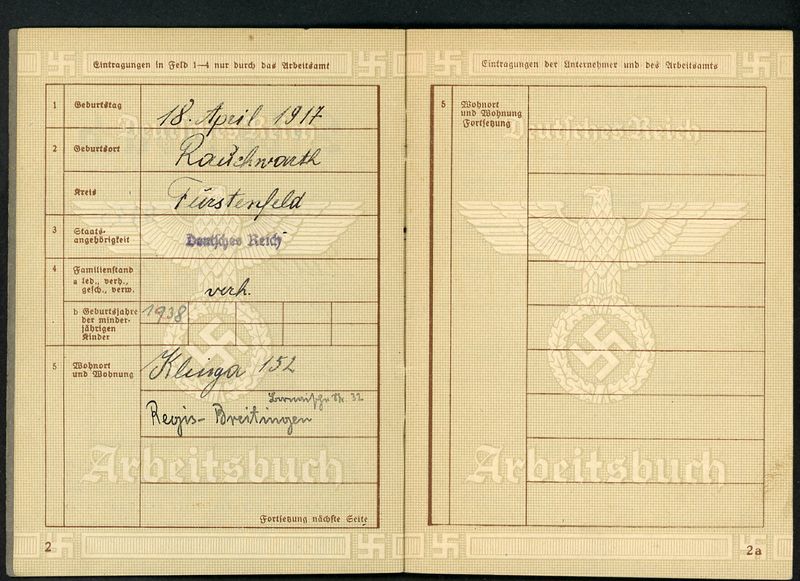 Eintragungen in Feld 1—4 nur durch das Arbeitsamt
1 Geburtstag 18. April 1917
2 Geburtsort Rauchwarth
Kreis Fürstenfeld
3 Staats-
angehörigkeit Deutsches Reich
4 Familienstand
a led., verh.,
gesch., verw. verh.
b Geburtsjahre 1938
der minder-
jährigen
Kinder
5 Wohnort
und Wohnung Klinga 152
Str. 32
Regis-Breitingen
Arbeitsbuch
Fortsetzung nächste Seite
2
Deutsches Reich
Eintragungen der Unternehmer und des Arbeitsamts
5 Wohnort
und Wohnung
Fortsetzung
Deutsches Reich
Arbeitsbuch
2a